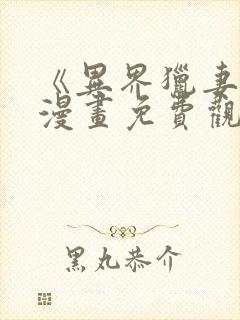 《異界獵妻
漫畫免費觀
黑丸恭介